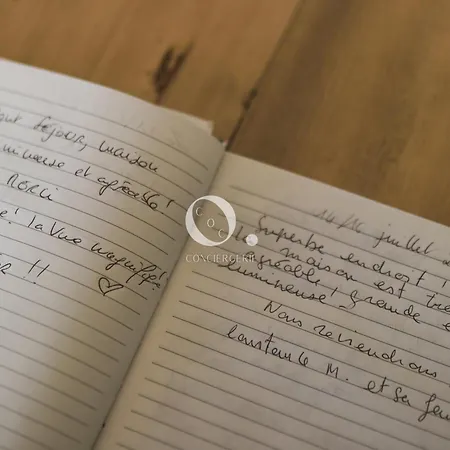 séjour, maison
lumineuse et agréable!
MERCI
! la vue magnifique!
!!
14/16 juillet
Superbe endroit!
La maison est très
agréable, grande e
lumineuse!
Nous reviendrons
Constance M. et sa fam
COCO.
CONCIERGERIE